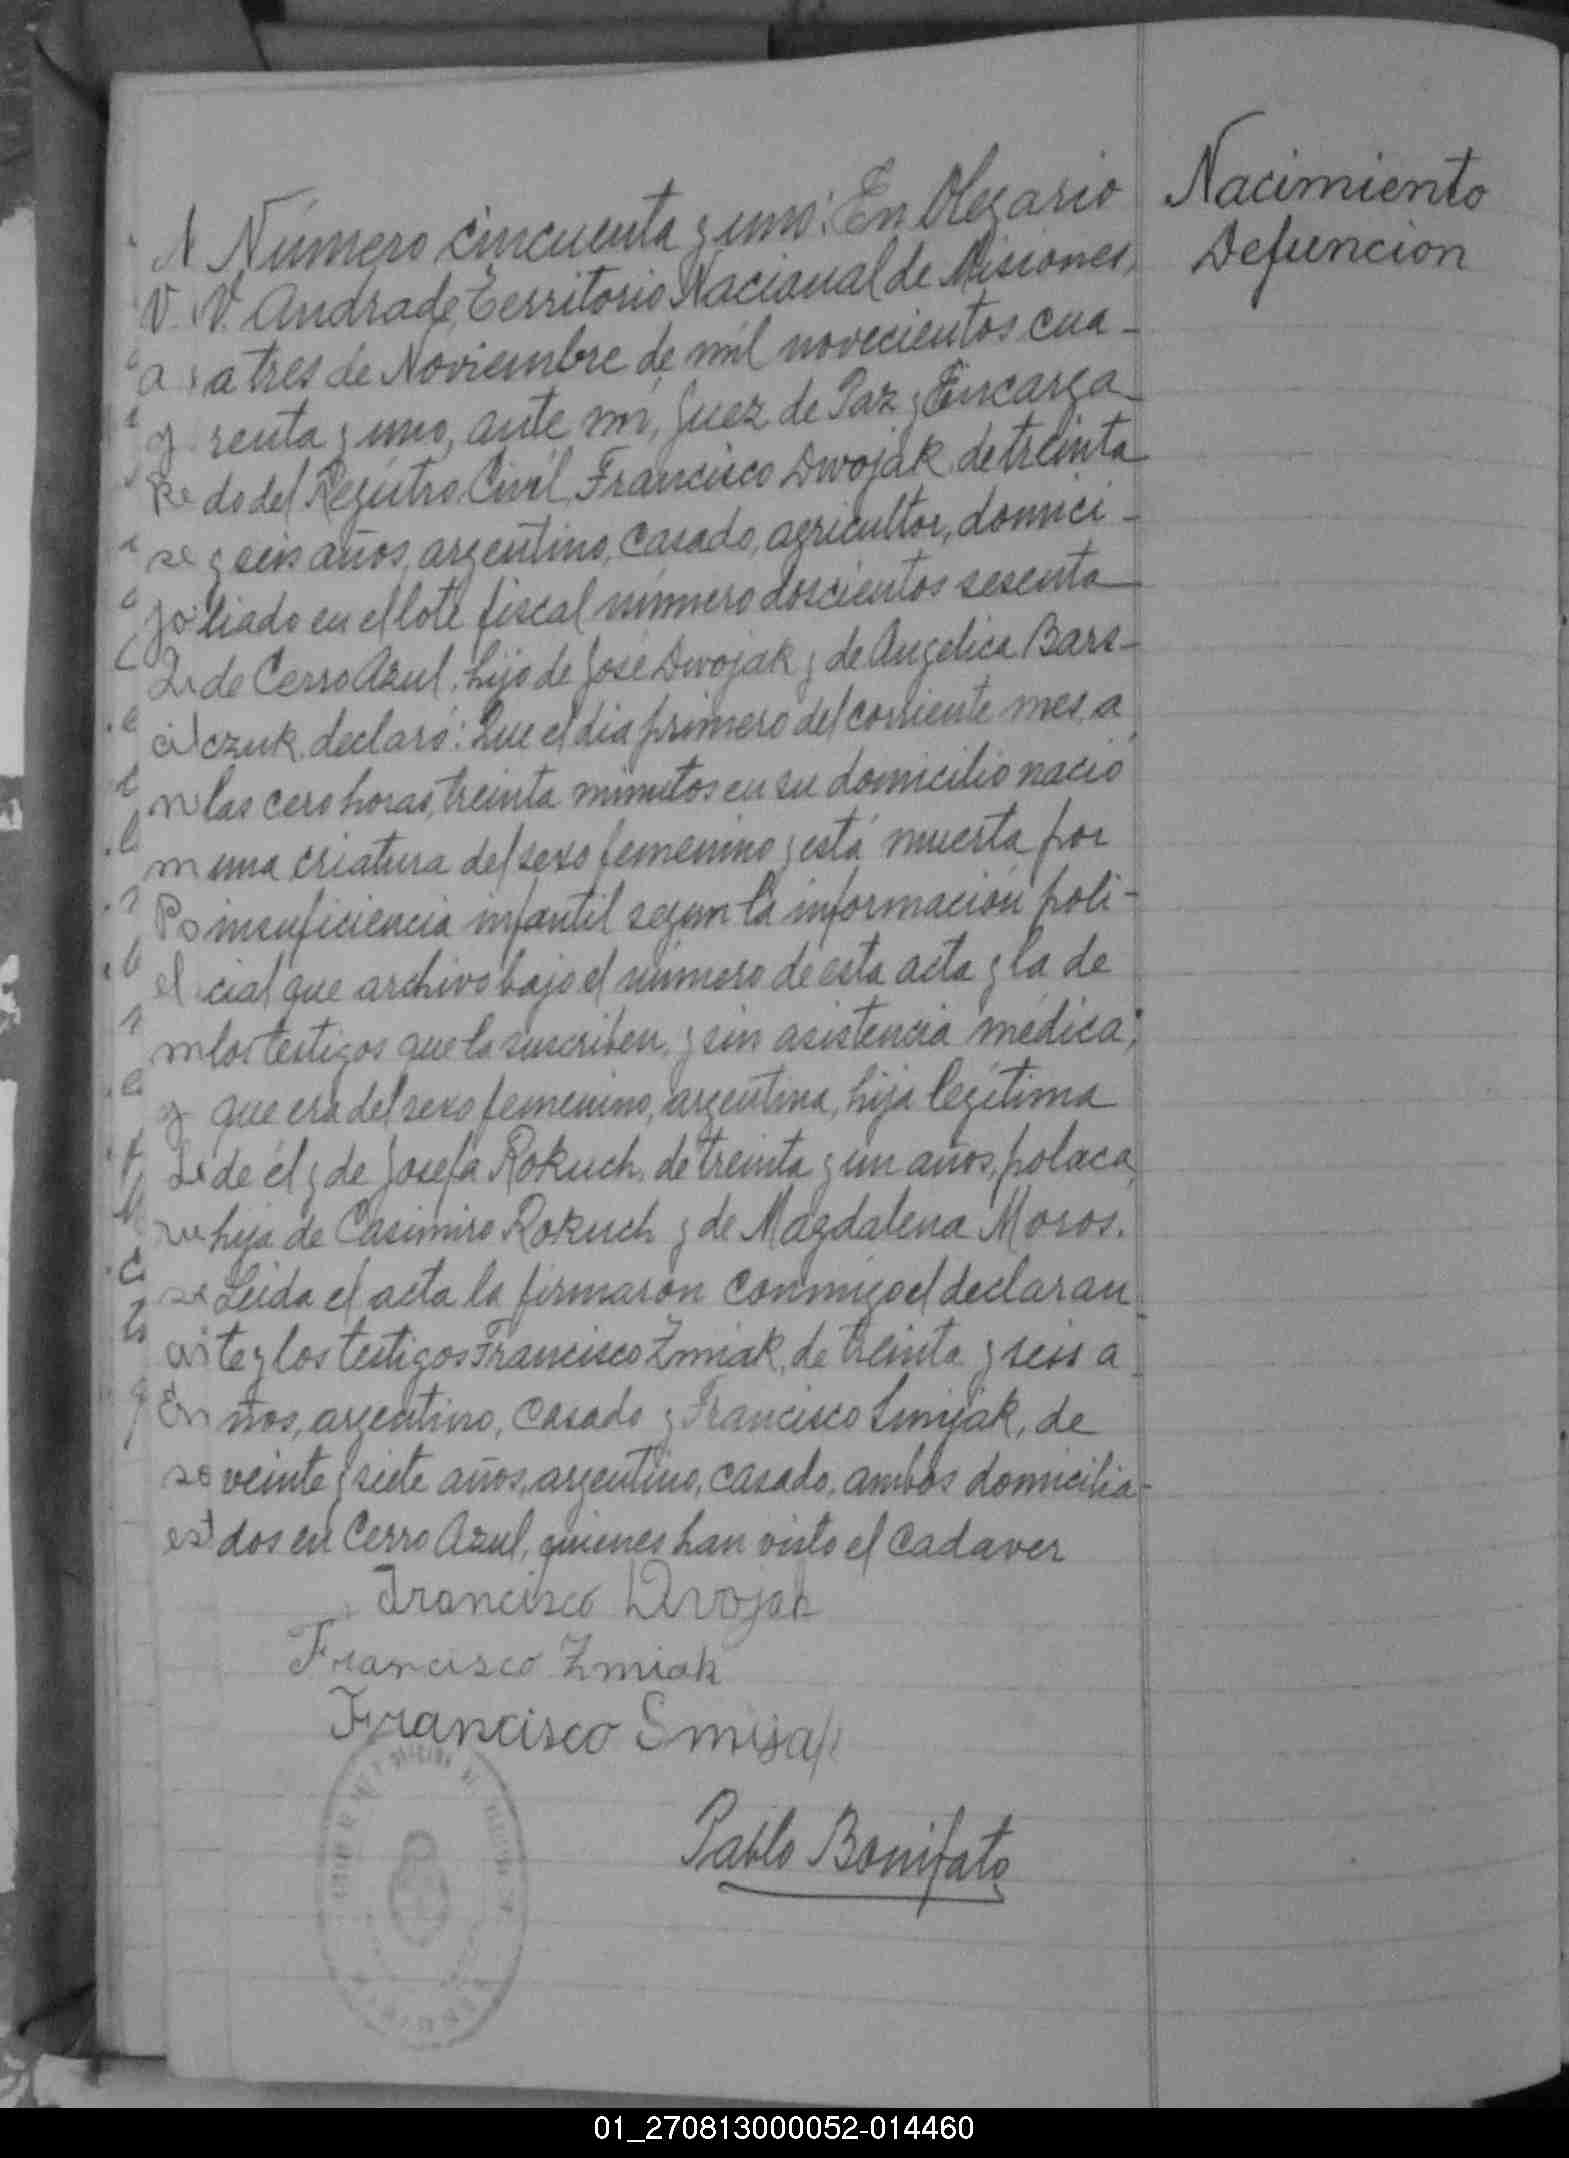 Nacimiento
Defuncion
Número cincuenta y uno: En Olegario
V. Andrade, Territorio Nacional de Misiones,
a tres de Noviembre de mil novecientos cua-
renta y uno, ante mí, Juez de Paz y Encarga-
do del Registro Civil, Francisco Dwojak, de treinta
y seis años, argentino, casado, agricultor, domici-
liado en el lote fiscal número doscientos sesenta
de Cerro Azul, hijo de José Dwojak y de Angelica Bars-
czuk, declaró: Que el día primero del corriente mes, a
las cero horas, treinta minutos en su domicilio nació
una criatura del sexo femenino y está muerta por
insuficiencia infantil segun la información poli-
cial que archivo bajo el número de esta acta y la de
los testigos que la suscriben, y sin asistencia médica;
que era del sexo femenino, argentina, hija legítima
de él y de Josefa Rokuch, de treinta y un años, polaca,
hija de Casimiro Rokuch y de Magdalena Moros.
Leída el acta la firmaron conmigo el declaran-
te y los testigos Francisco Zmiak, de treinta y seis a-
ños, argentino, casado y Francisco Smijak, de
veinte y siete años, argentino, casado, ambos domicilia-
dos en Cerro Azul, quienes han visto el cadaver
Francisco Dwojak
Francisco Zmiak
Francisco Smijak
Pablo Bonifato
01_270813000052-014460